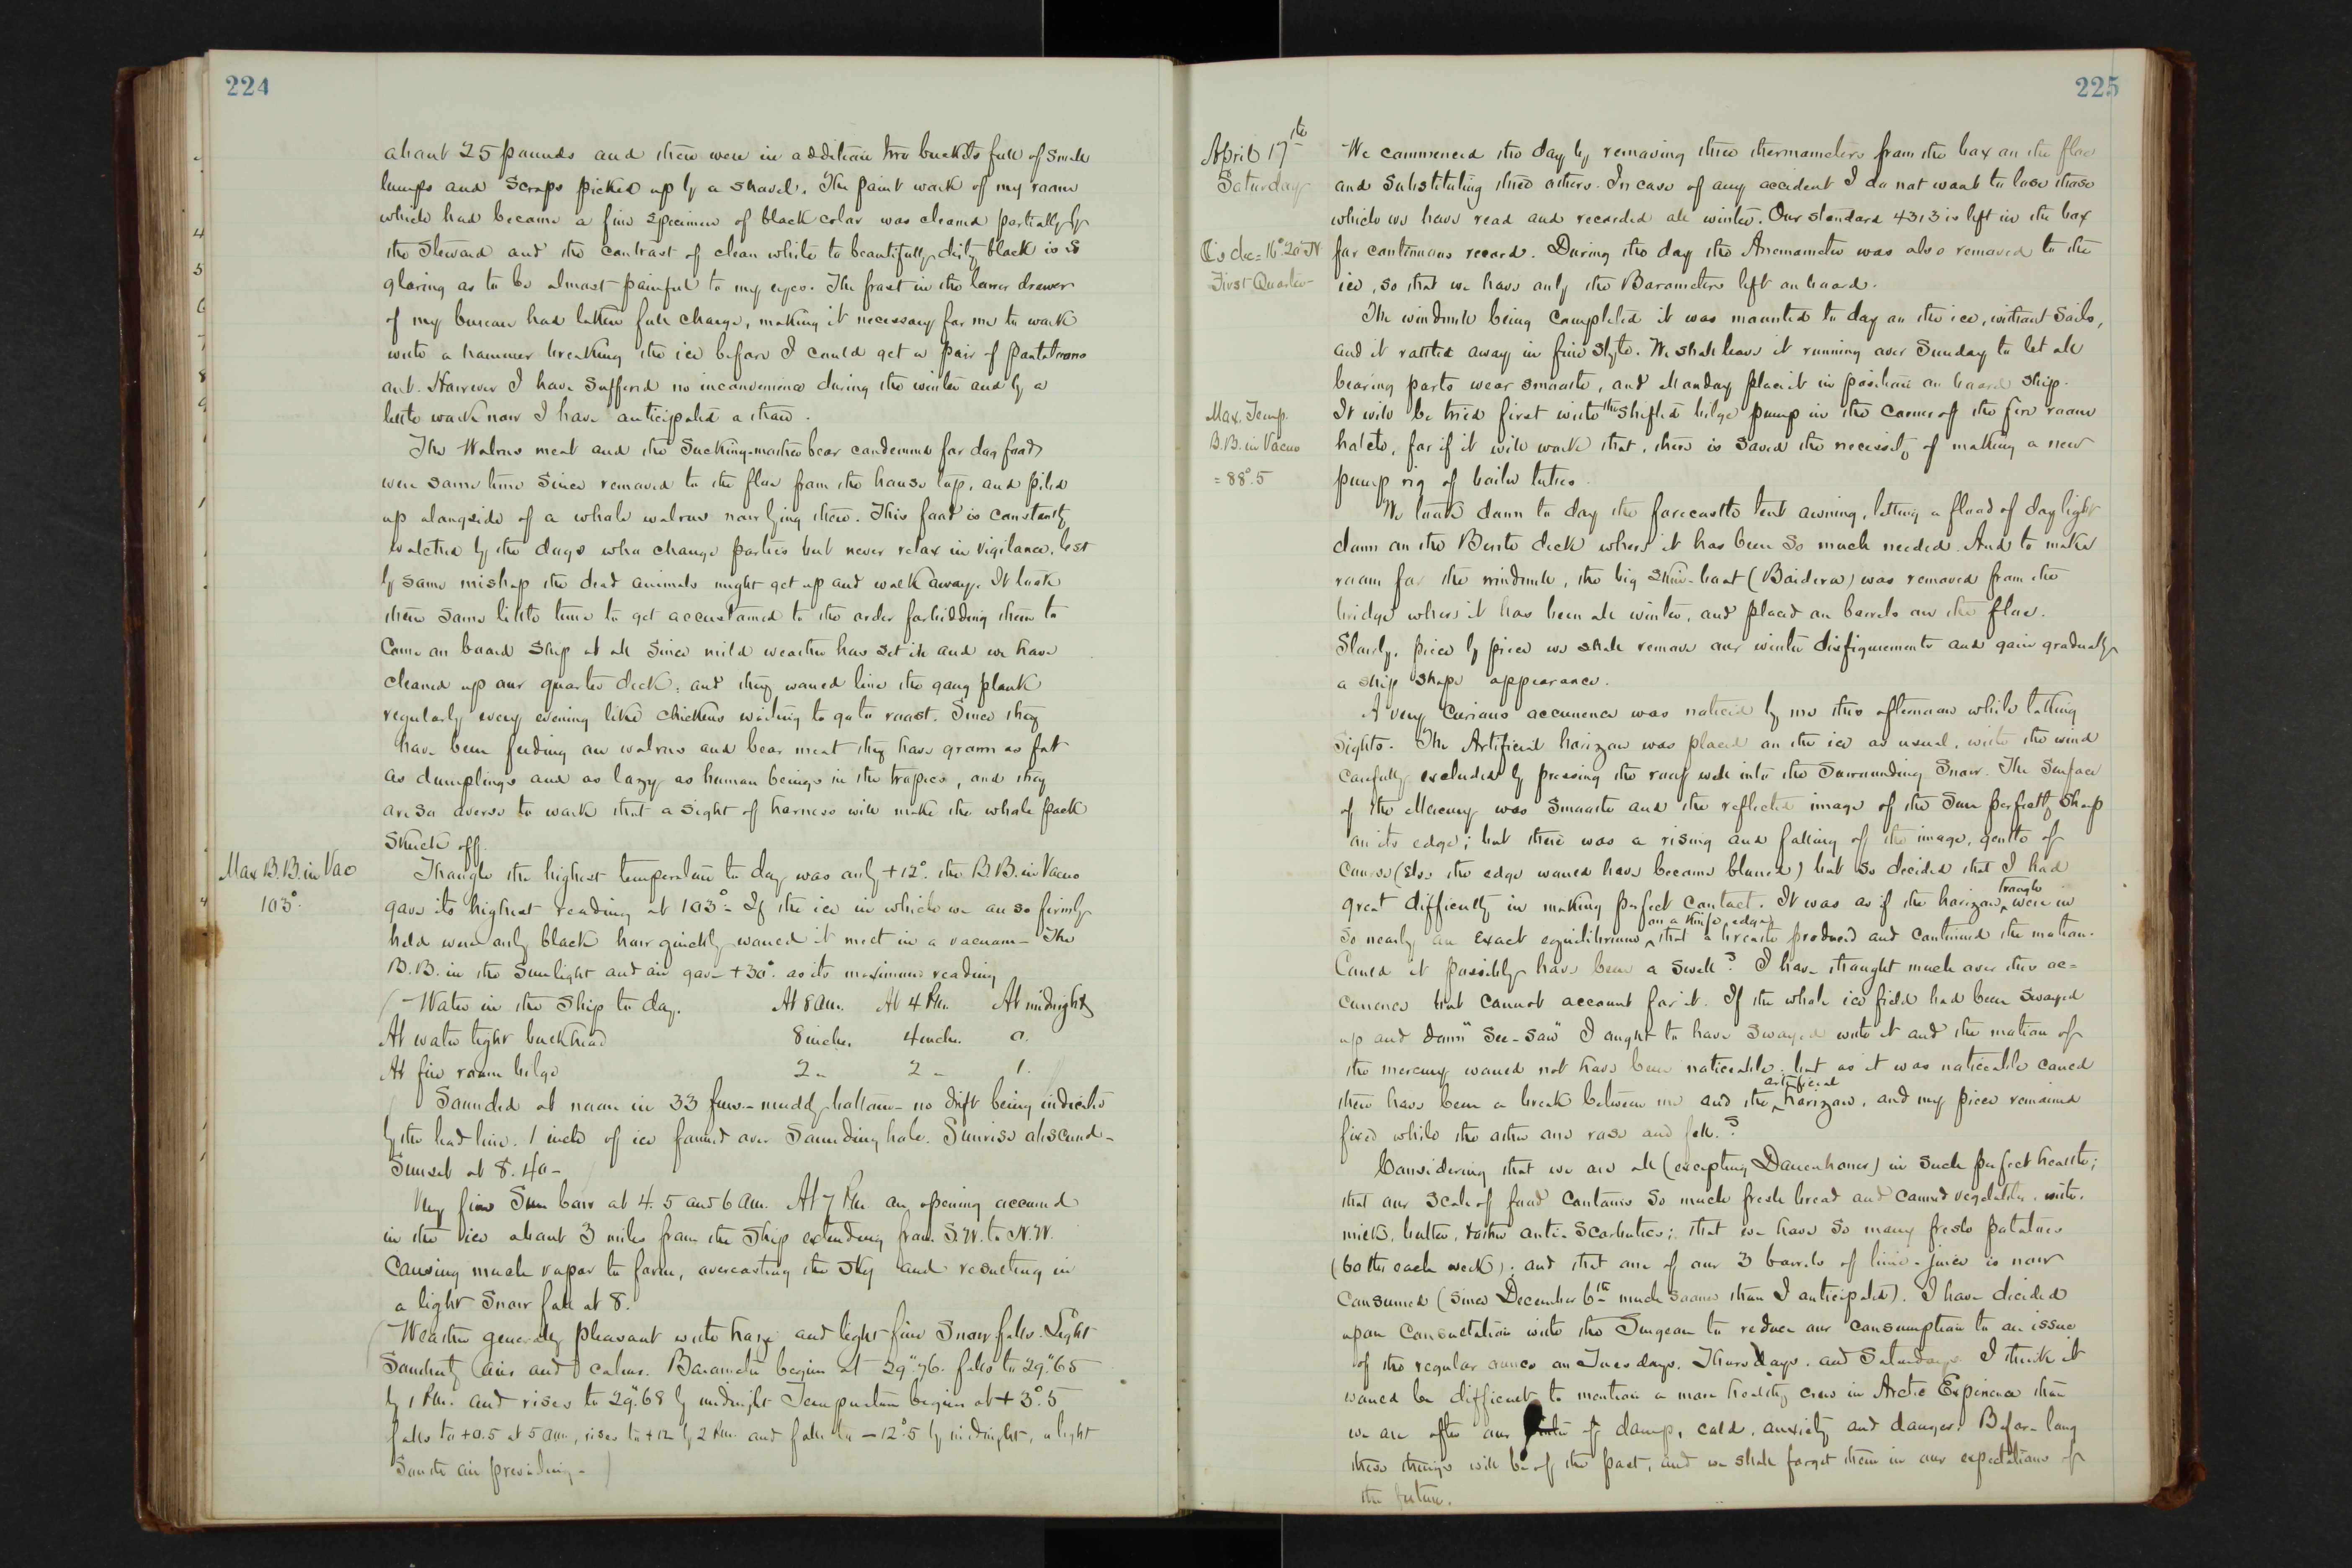 224
about 25 pounds and there were in addition two buckets full of small
lumps and scraps picked up by a shovel. The paint work of my room
which had become a fine specimen of black color was cleaned partially by
the Steward and the contrast of clean white to beautifully dirty black is so
glaring as to be almost painful to my eyes. The frost in the lower drawer
of my bureau had taken full charge, making it necessary for me to work
with a hammer breaking the ice before I could get a pair of pantaloons
out. However I have suffered no inconvenience during the winter and by a
little work now I have anticipated a thaw.
The Walrus meat and the Sucking-mother bear condemned for dog food
were some time since removed to the floe from the house top, and piled
up alongside of a whole walrus now lying there. This food is constantly
watched by the dogs who change parties but never relax in vigilance, lest
by some mishap the dead animals might get up and walk away. It took
them some little time to get accustomed to the order forbidding them to
Come on board ship at all since mild weather has set in and we have
cleaned up our quarter deck: and they would line the gang plank
regularly every evening like chickens waiting to go to roost. Since they
have been feeding on walrus and bear meat they have grown as fat
as dumplings and as lazy as human beings in the tropics, and they
are so averse to work that a sight of harness will make the whole pack
skulk off.
Max B.B. in Vac
103°.
Though the highest temperature to day was only +12°. the B.B. in Vacuo
gave its highest reading at 103°- If the ice in which we are so firmly
held were only black how quickly would it melt in a vacuum- The
B.B. in the sunlight and air gave +30°. as its maximum reading
(Water in the Ship to day. At 8 am. At 4 Pm. At midnight
At water tight bulkhead 8 inches. 4 inches. 0.
At fire room bilge 2 " 2 " 1.
Sounded at noon in 33 fms.- muddy bottom- no drift being indicated
by the lead line. 1 inch of ice formed over Sounding hole. Sunrise obscured-
Sunset at 8.40-
Very fine Sun bow at 4. 5 and 6 am. At 7 Pm. an opening occurred
in the ice about 3 miles from the Ship extending from S.W. to N.W.
Causing much vapor to form, overcasting the sky and resulting in
a light Snow fall at 8.
Weather generally pleasant with haze and light fine Snow falls. Light
Southerly airs and calms. Barometer begins at 29".76. falls to 29".65
by 1 Pm. and rises to 29".68 by midnight Temperature begins at +3°.5
falls to +0.5 at 5 am, rises to +12 by 2 Pm. and falls to -12°.5 by midnight, a light
South air prevailing-)
225
April 17th
Saturday
☾'s dec = 16° 20' N
First Quarter
We commenced the day by removing three thermometers from the box on the floe
and Substituting three others. In case of any accident I do not want to lose those
which we have read and recorded all winter. Our standard 4313 is left in the box
for continuous record. During the day the Anemometer was also removed to the
ice, so that we have only the Barometers left on board.
The windmill being Completed it was mounted to day on the ice, without Sails,
and it rattled away in fine style. We shall leave it running over Sunday to let all
bearing parts wear smooth, and Monday place it in position on board Ship.
Max. Temp.
B.B. in Vacuo
= 88°.5
It will be tried first with the shifted bilge pump in the corner of the fire room
hatch, for if it will work that, there is saved the necessity of making a new
pump rig of boiler tubes.
We took down to day the forecastle tent awning, letting a flood of day light
down on the Berth deck where it has been so much needed. And to make
room for the windmill, the big skin-boat (Baidera) was removed from the
bridge where it has been all winter, and placed on barrels on the floe.
Slowly, piece by piece we shall remove our winter disfigurements and gain gradually
a ship shape appearance.
A very Curious occurrence was noticed by me this afternoon while taking
Sights. The Artificial horizon was placed on the ice as usual, with the wind
Carefully excluded by pressing the roof well into the Surrounding Snow. The Surface
of the Mercury was Smooth and the reflected image of the Sun perfectly sharp
on its edge; but there was a rising and falling of the image, gentle of
Course (else the edge would have become blurred) but so decided that I had
great difficulty in making perfect contact. It was as if the horizon trough were in
So nearly an exact equilibrium on a knife edge that a breath produced and continued the motion.
Could it possibly have been a swell? I have thought much over this oc=
currence but cannot account for it. If the whole ice field had been swayed
up and down "See-saw" I ought to have swayed with it and the motion of
the mercury would not have been noticeable: but as it was noticeable could
there have been a break between me and the artificial horizon, and my piece remained
fixed while the other one rose and fell.?
Considering that we are all (excepting Danenhower) in such perfect health;
that our Scale of food contains so much fresh bread and canned vegetables, with
milk, butter, &other anti-scorbutics; that we have so many fresh potatoes
(60 lbs each week); and that one of our 3 barrels of lime-juice is now
Consumed (since December 6th much sooner than I anticipated). I have decided
upon Consultation with the Surgeon to reduce our consumption to an issue
of the regular ounce on Tuesdays, Thursdays, and Saturdays. I think it
would be difficult to mention a more healthy crew in Arctic Experience than
we are after our winter of damp, cold, anxiety and danger. Before long
these things will be of the past, and we shall forget them in our expectations of
the future.